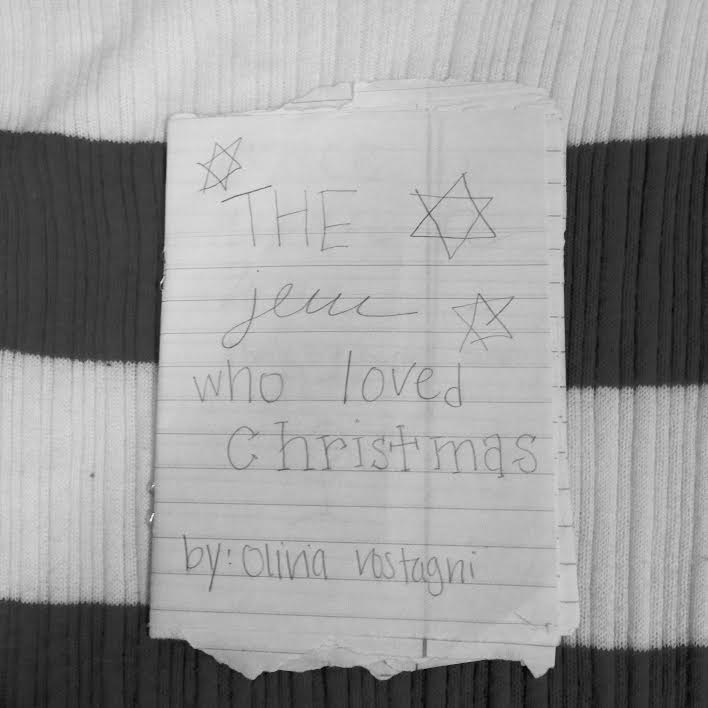 THE
jew
who loved
Christmas
by: olivia rostagni